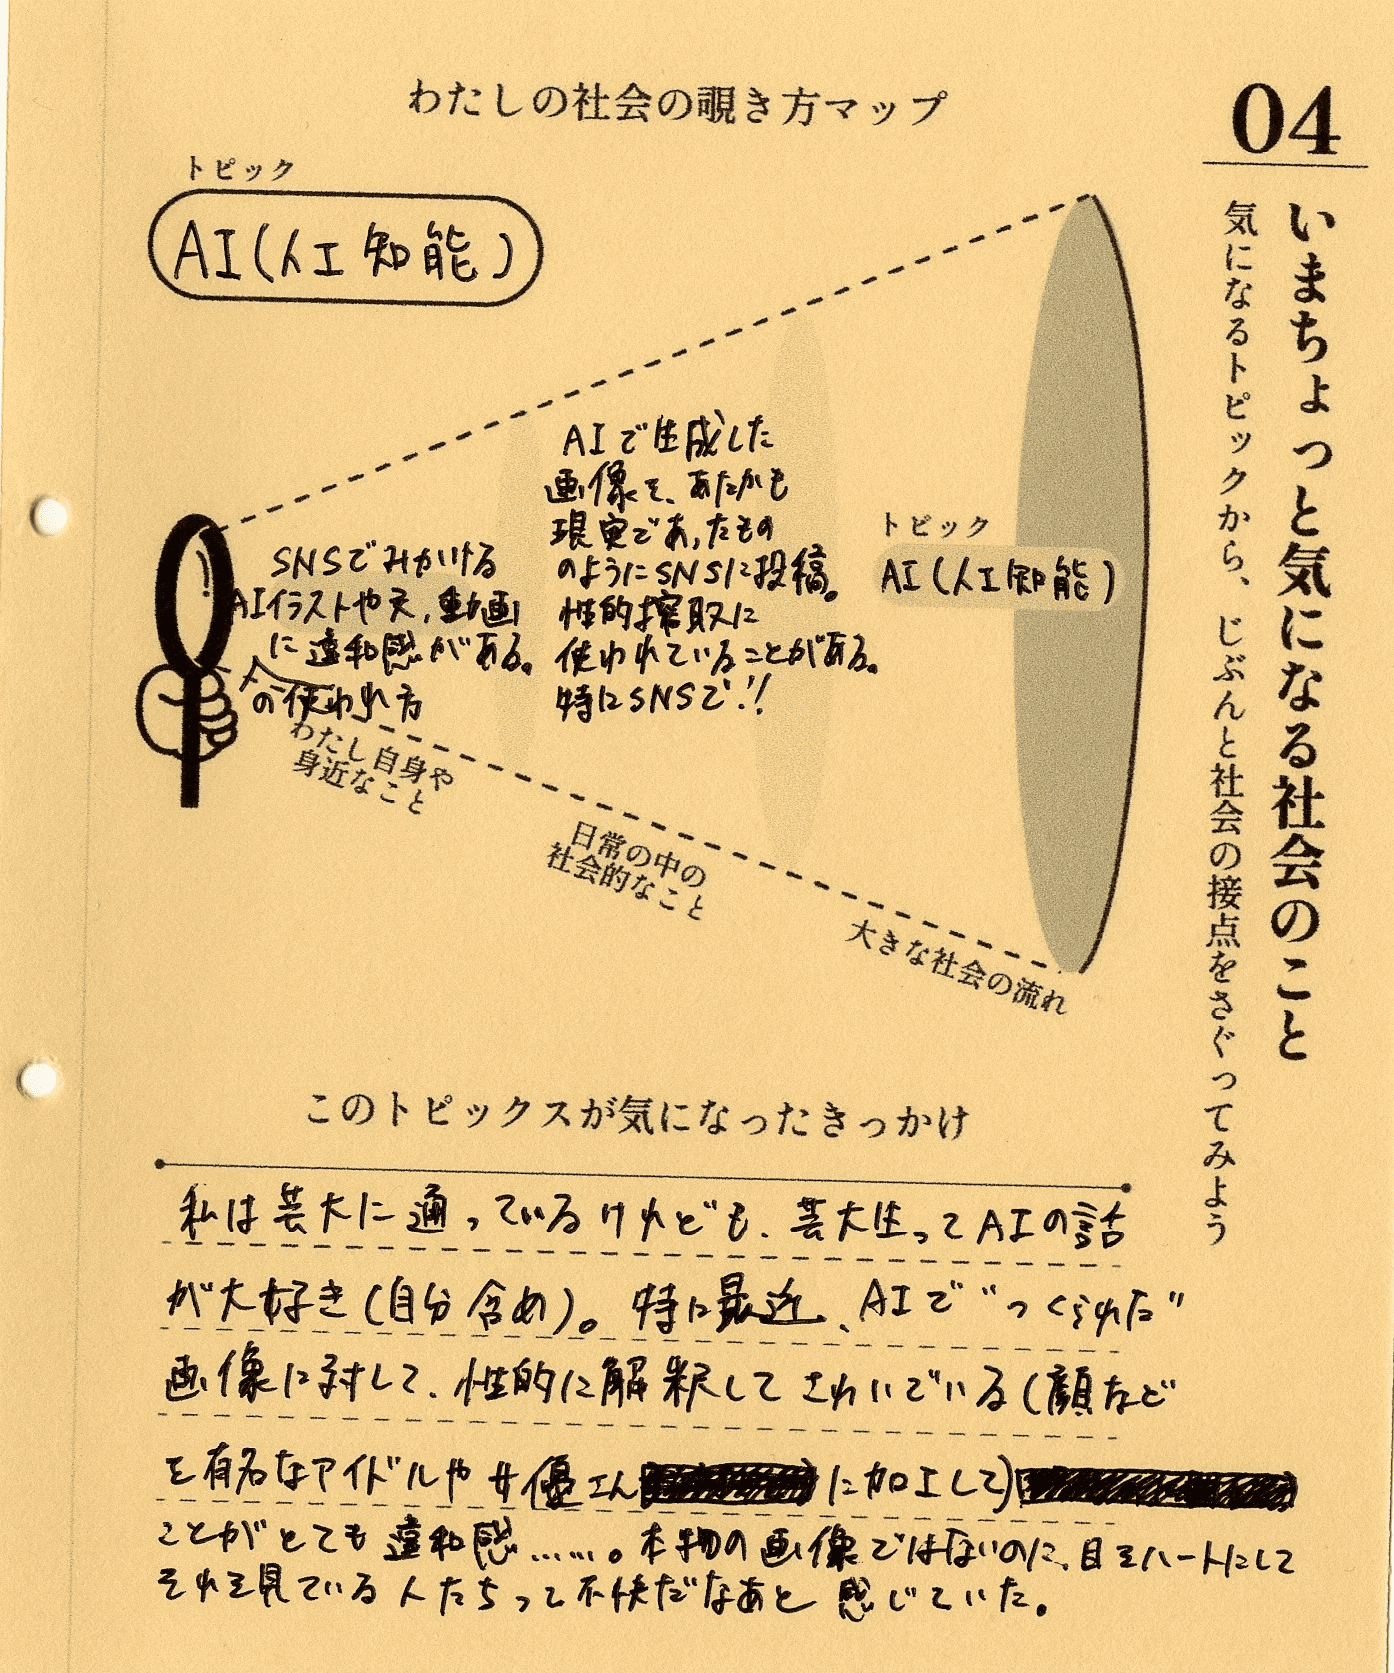 04
いまちょっと気になる社会のこと
気になるトピックから、じぶんと社会の接点をさぐってみよう
わたしの社会の覗き方マップ
トピック
AI(人工知能)
SNSでみかける
AIイラストや文,動画
に違和感がある。
の使われ方
わたし自身や
身近なこと
AIで生成した
画像を、あたかも
現実であったもの
のようにSNSに投稿。
性的搾取に
使われていることがある。
特にSNSで!!
日常の中の
社会的なこと
トピック
AI(人工知能)
大きな社会の流れ
このトピックスが気になったきっかけ
私は芸大に通っているけれども、芸大生ってAIの話
が大好き(自分含め)。特に最近、AIで"つくられた"
画像に対して、性的に解釈して さわいでいる(顔など
を有名なアイドルや女優さん に加工して)
ことがとても違和感……。本物の画像ではないのに、目をハートにして
それを見ている人たちって不快だなあと 感じていた。